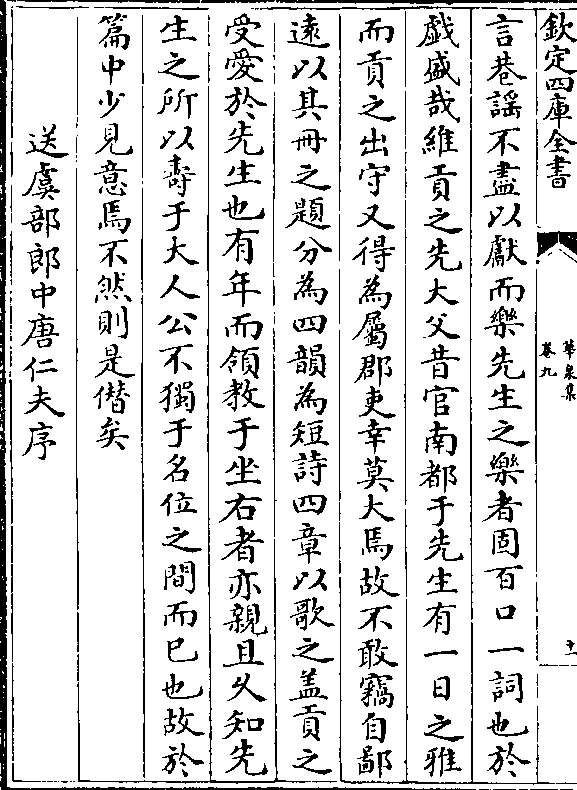 欽定四庫全書
華泉集
卷九
十一
言巷謡不盡以獻而樂先生之樂者固百口一詞也於
戲盛哉維貢之先大父昔官南都于先生有一日之雅
而貢之出守又得為屬郡吏幸莫大焉故不敢竊自鄙
逺以其冊之題分為四韻為短詩四章以歌之盖貢之
受愛於先生也有年而領教于坐右者亦親且久知先
生之所以壽于大人公不獨于名位之間而已也故於
篇中少見意焉不然則是僭矣
送虞部郎中唐仁夫序